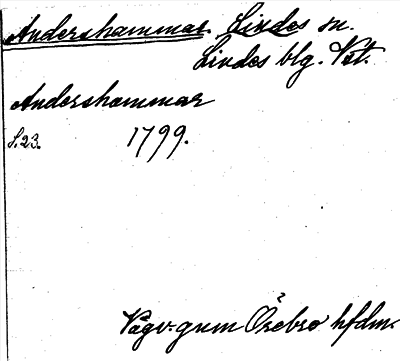 Andershammar Lindes sn.
Lindes blg. Vst.
Andershammar
S.23. 1799.
Vägv. gnm Örebro hfdm.